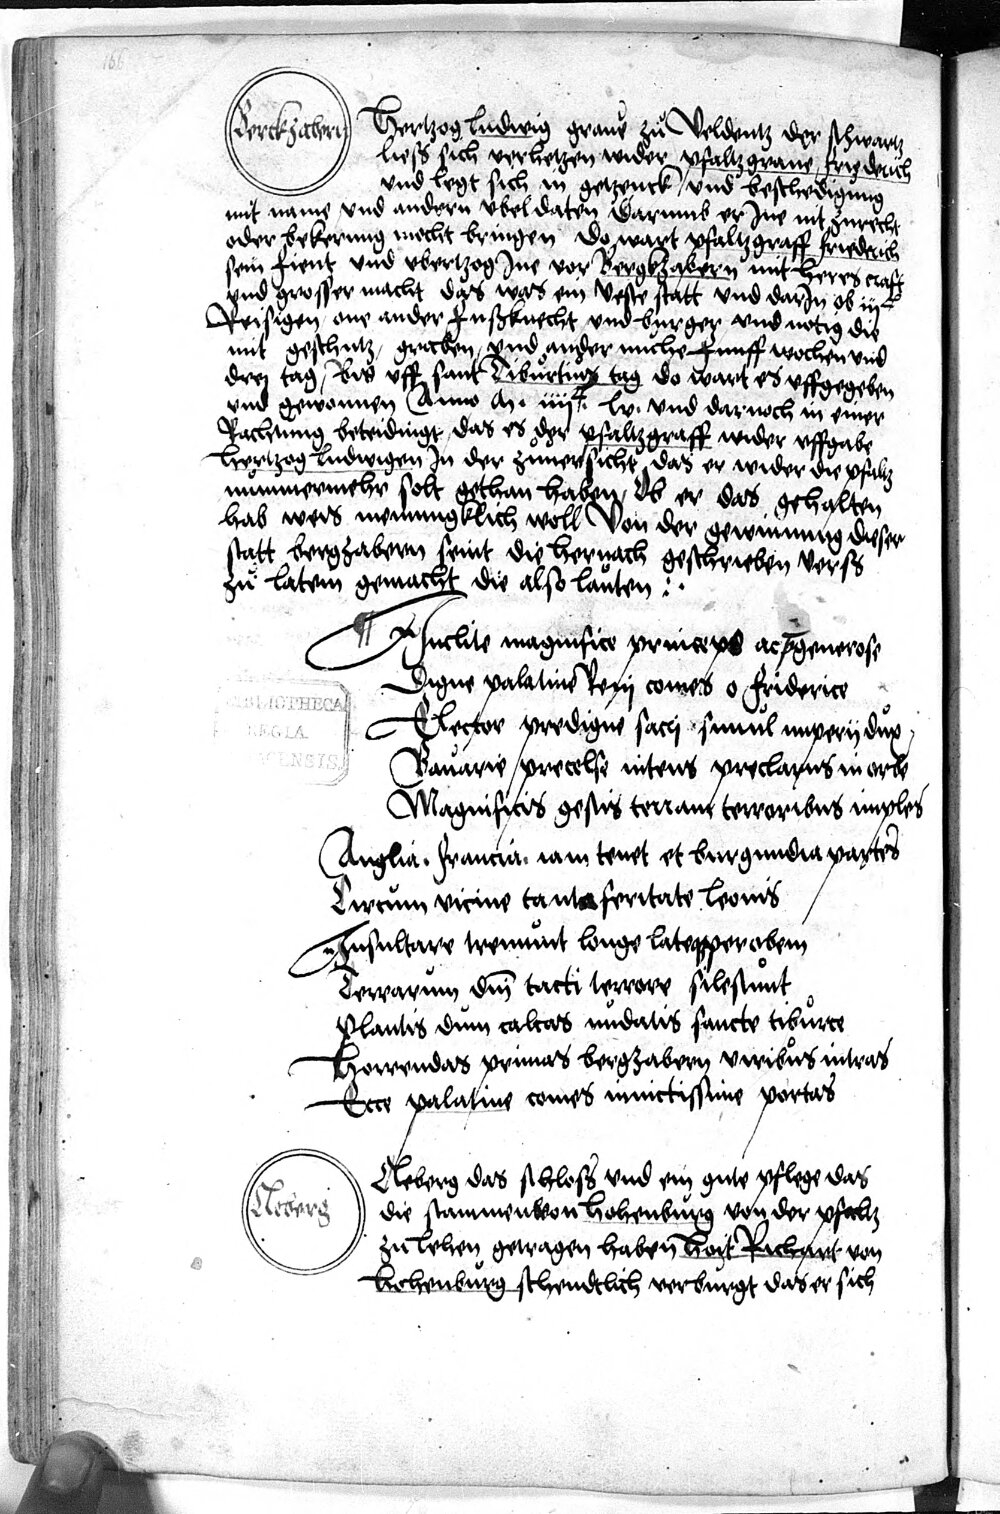 166
Berckzabern
Hertzog Ludwig grave zu Veldentz der schwartz
liess sich verhetzen wider pfaltzgrave friderich
und legt sich in gezenck und beschedigung
mit name und andern ubel daten Darumb er Ine nit zurecht
oder bekerung mocht bringen Do wart pfaltzgraff friederich
sein fient und ubertzog Ine vor Bergkzabern mit herrs craft
und grosser macht das was ein veste statt und darIn ob iiij c
Reisigen one ander fuszknecht und burger und notig die
mit geschutz graben und ander muche funff wochen und
drey tag / bis uff sant Tiburtius tag do wart es uffgegeben
und gewonnen Anno dni iiij c lv. und darnoch in einer
Rachtung beteidingt das es der pfaltzgraff wider uffgabe
hertzog Ludwigen In der zuuersicht das er wider die pfaltz
nummermehr solt gethan haben / Ob er das gehalten
hab weis menigklich woll Von der gewinnung dieser
statt bergzabern seint die hernach geschrieben verss
zu latein gemacht die also lauten :.
Inclite magnifice princeps ac generose
Digne palatine Reni comes o friderice
Elector predigne sacij simul imperij dux
Bavarie precelse nitens preclarus in orbe
Magnificis gestis terram terroribus imples
Anglia. francia. iam tenet et burgundia partes
Circum vicine tanta feritate leonis
Insultare tremunt longe lateque per orbem
Terrarum dni tacti terrore silescunt
Plantis dum calcas nudatis sancte tiburce
Horrendas primas bergzabern viribus intras
Ecce palatine comes invictissime portas
Cleberg
Cleberg das schloss und ein gute pflege das
die stammen von hohenburg von der pfaltz
zu lehen getragen haben hait Richart von
hohenburg schendtlich verburgt das er sich
BIBLIOTHECA
REGIA
MONACENSIS.